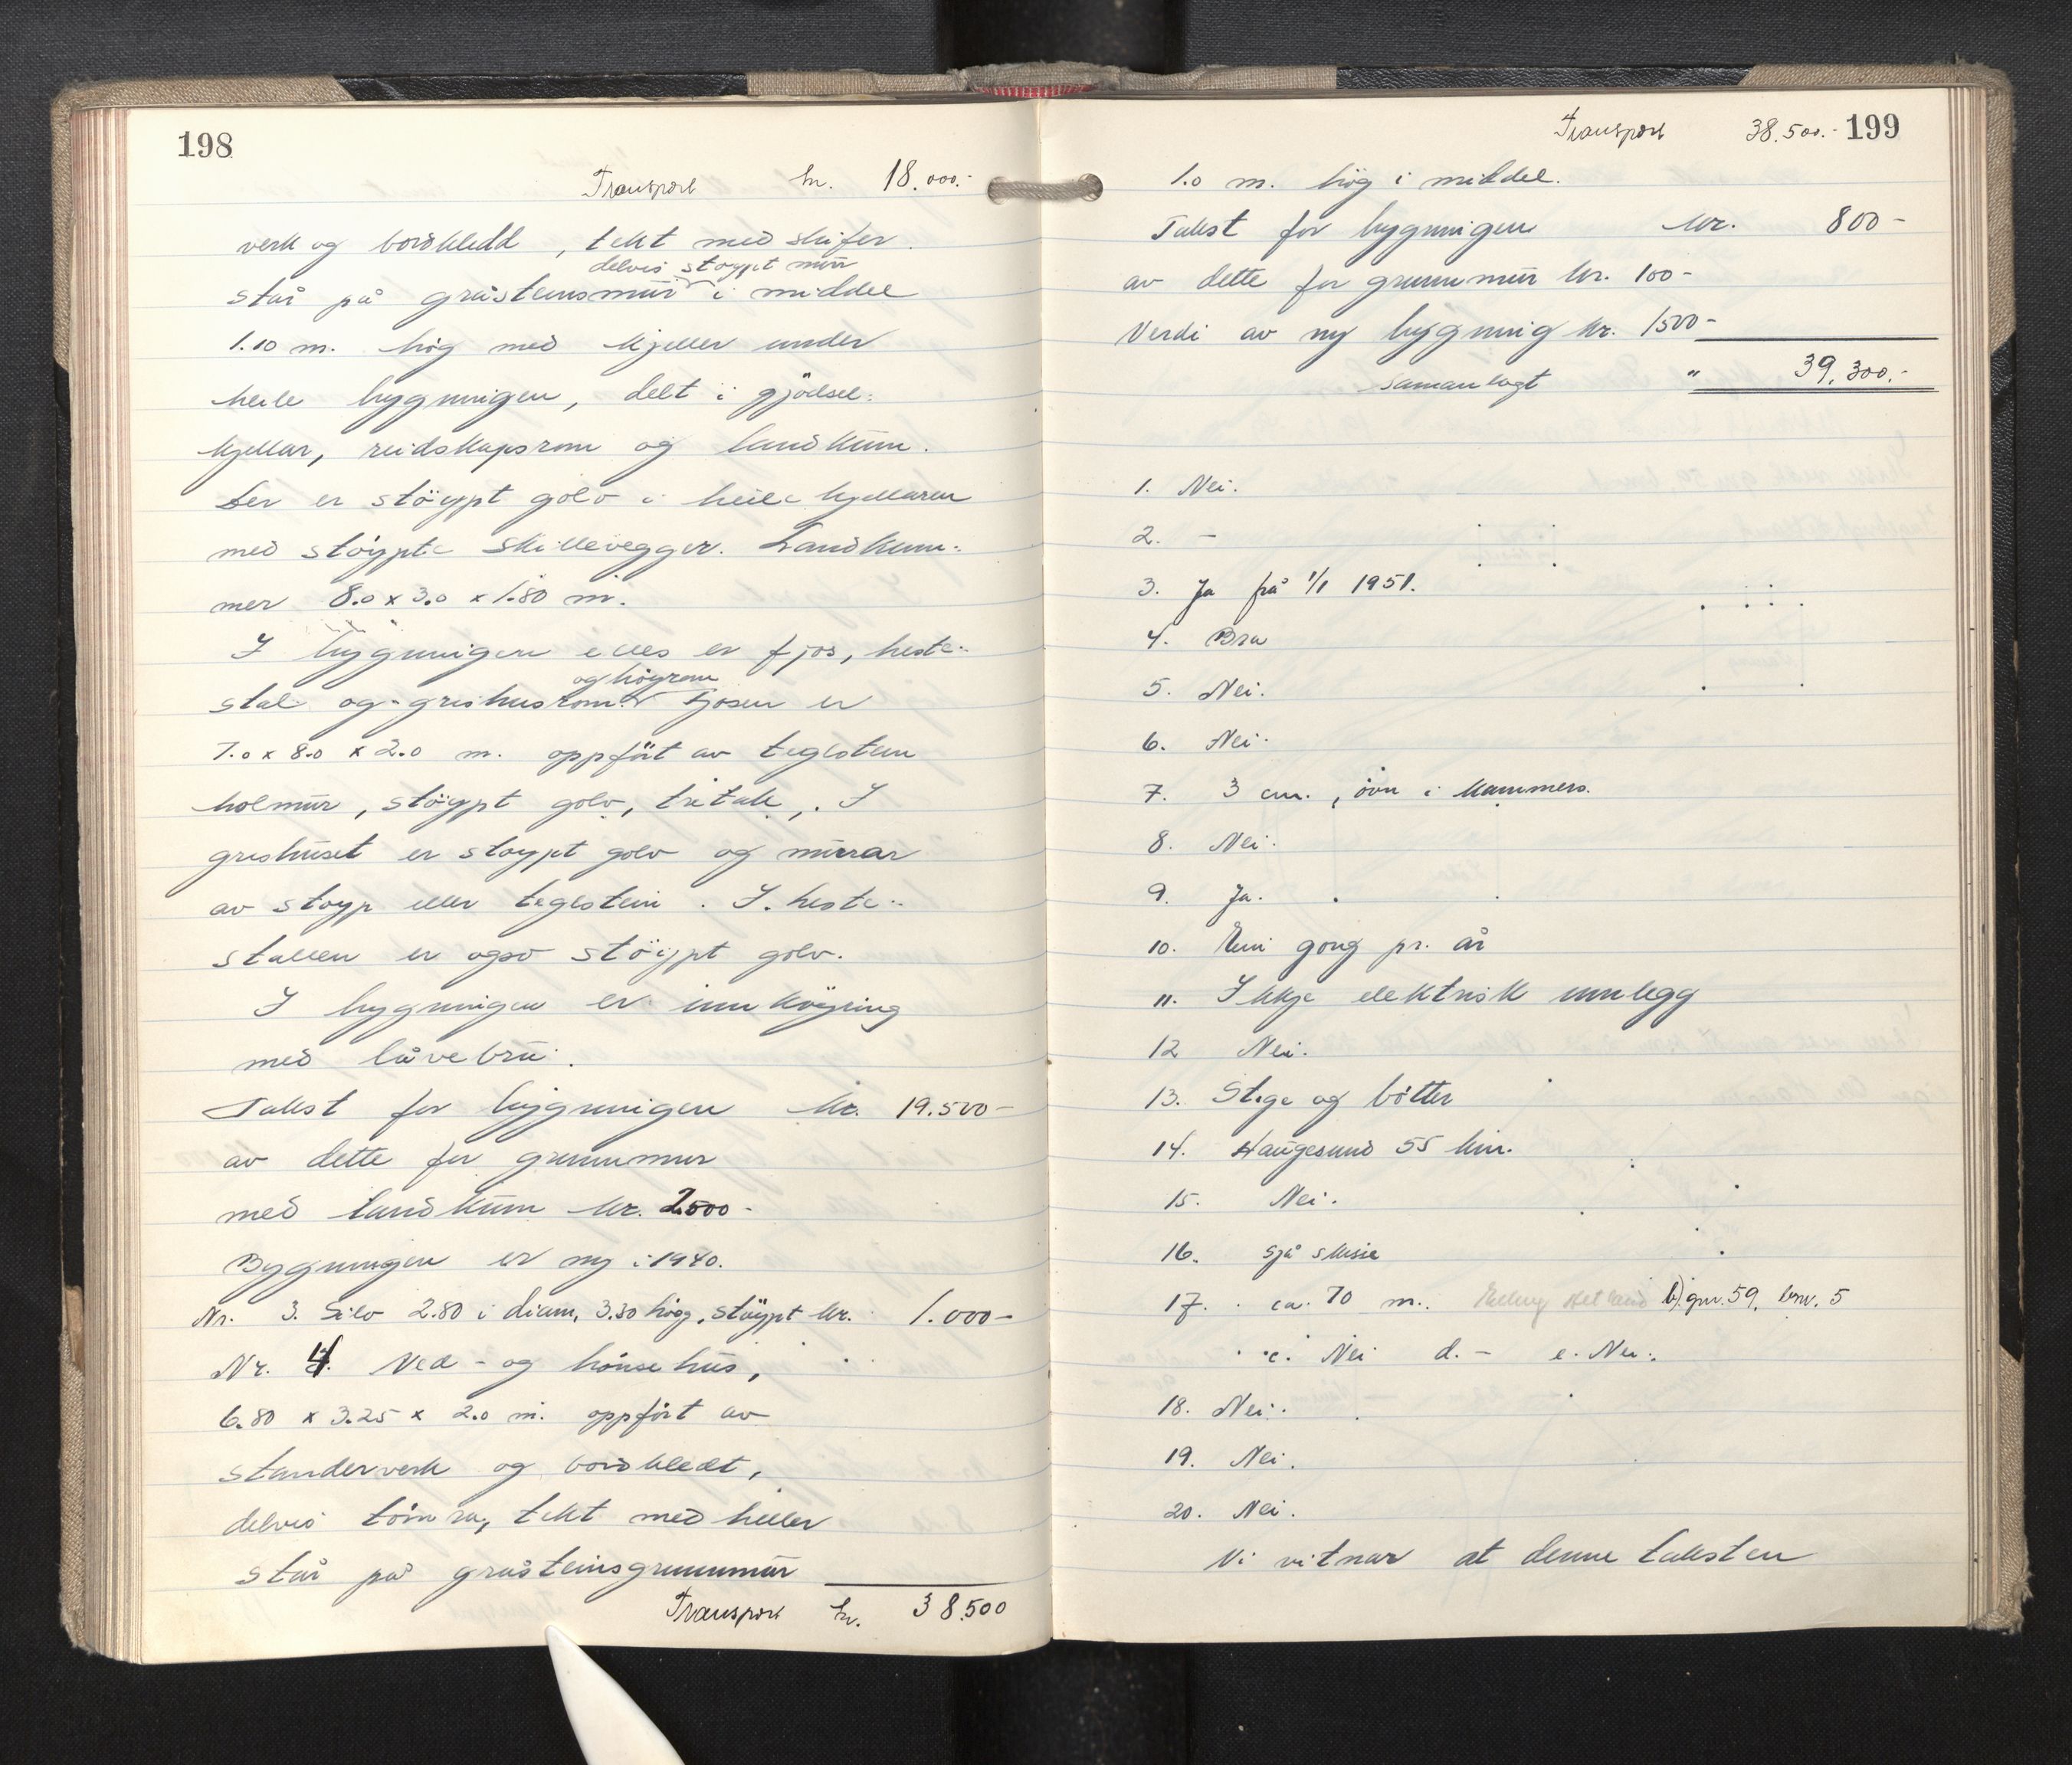 198
Transport kr. 18.000.-
verk og bordkledd, tekt med skifer.
delvis støypt mur
står på gråsteinsmur i middel
1.10 m. høg med kjeller under
heile bygningen, delt i gjödsel-
kjellar, reidskapsrom og landkum.
Der er stöypt golv i heile kjellaren
med stöypte skillevegger. Landkum-
mer 8.0 x 3.0 x 1.80 m.
I bygningen elles er fjos, heste-
og höyrom
stal og grishusrom. Fjosen er
7.0 x 8.0 x 2.0 m. oppfört av teglstein
holmur, stöypt golv, tretak. I
grishuset er stoypt golv og murar
av stoyp eller teglstein. I heste-
stallen er også stöypt golv.
I bygningen er innköyring
med låvebru.
Takst for bygningen kr. 19.500-
av dette for grunnmur
med landkum kr. 2500-
Bygningen er ny i 1940.
Nr. 3. Silo 2.80 i diam, 3.30 høg, stöypt kr. 1.000-
Nr. 4. Ved- og hönsehus,
6.80 x 3.25 x 2.0 m. oppfört av
standerverk og bordkledt,
delvis tömra, tekt med heller
står på gråsteinsgrunnmur
Transport kr. 38.500
Transport 38.500.- 199
1.0 m. høg i middel.
Takst for bygningen kr. 800-
av dette for grunnmur kr. 100-
Verdi av ny bygning kr. 1500-
samanlagt " 39.300.-
1. Nei.
2. -
3. Ja frå 1/1 1951.
4. Bra
5. Nei.
6. Nei.
7. 3 cm., ovn i kammers.
8. Nei.
9. Ja.
10. Ein gong pr. år
11. Ikkje elektrisk innlegg
12 Nei.
13. Stige og bötter
14. Haugesund 55 km.
15. Nei.
16. Sjå skisse
17. ca. 70 m. b) gnr. 59, bnr. 5
c. Nei d. - e. Nei.
18. Nei.
19. Nei.
20. Nei.
Vi vitnar at denne taksten